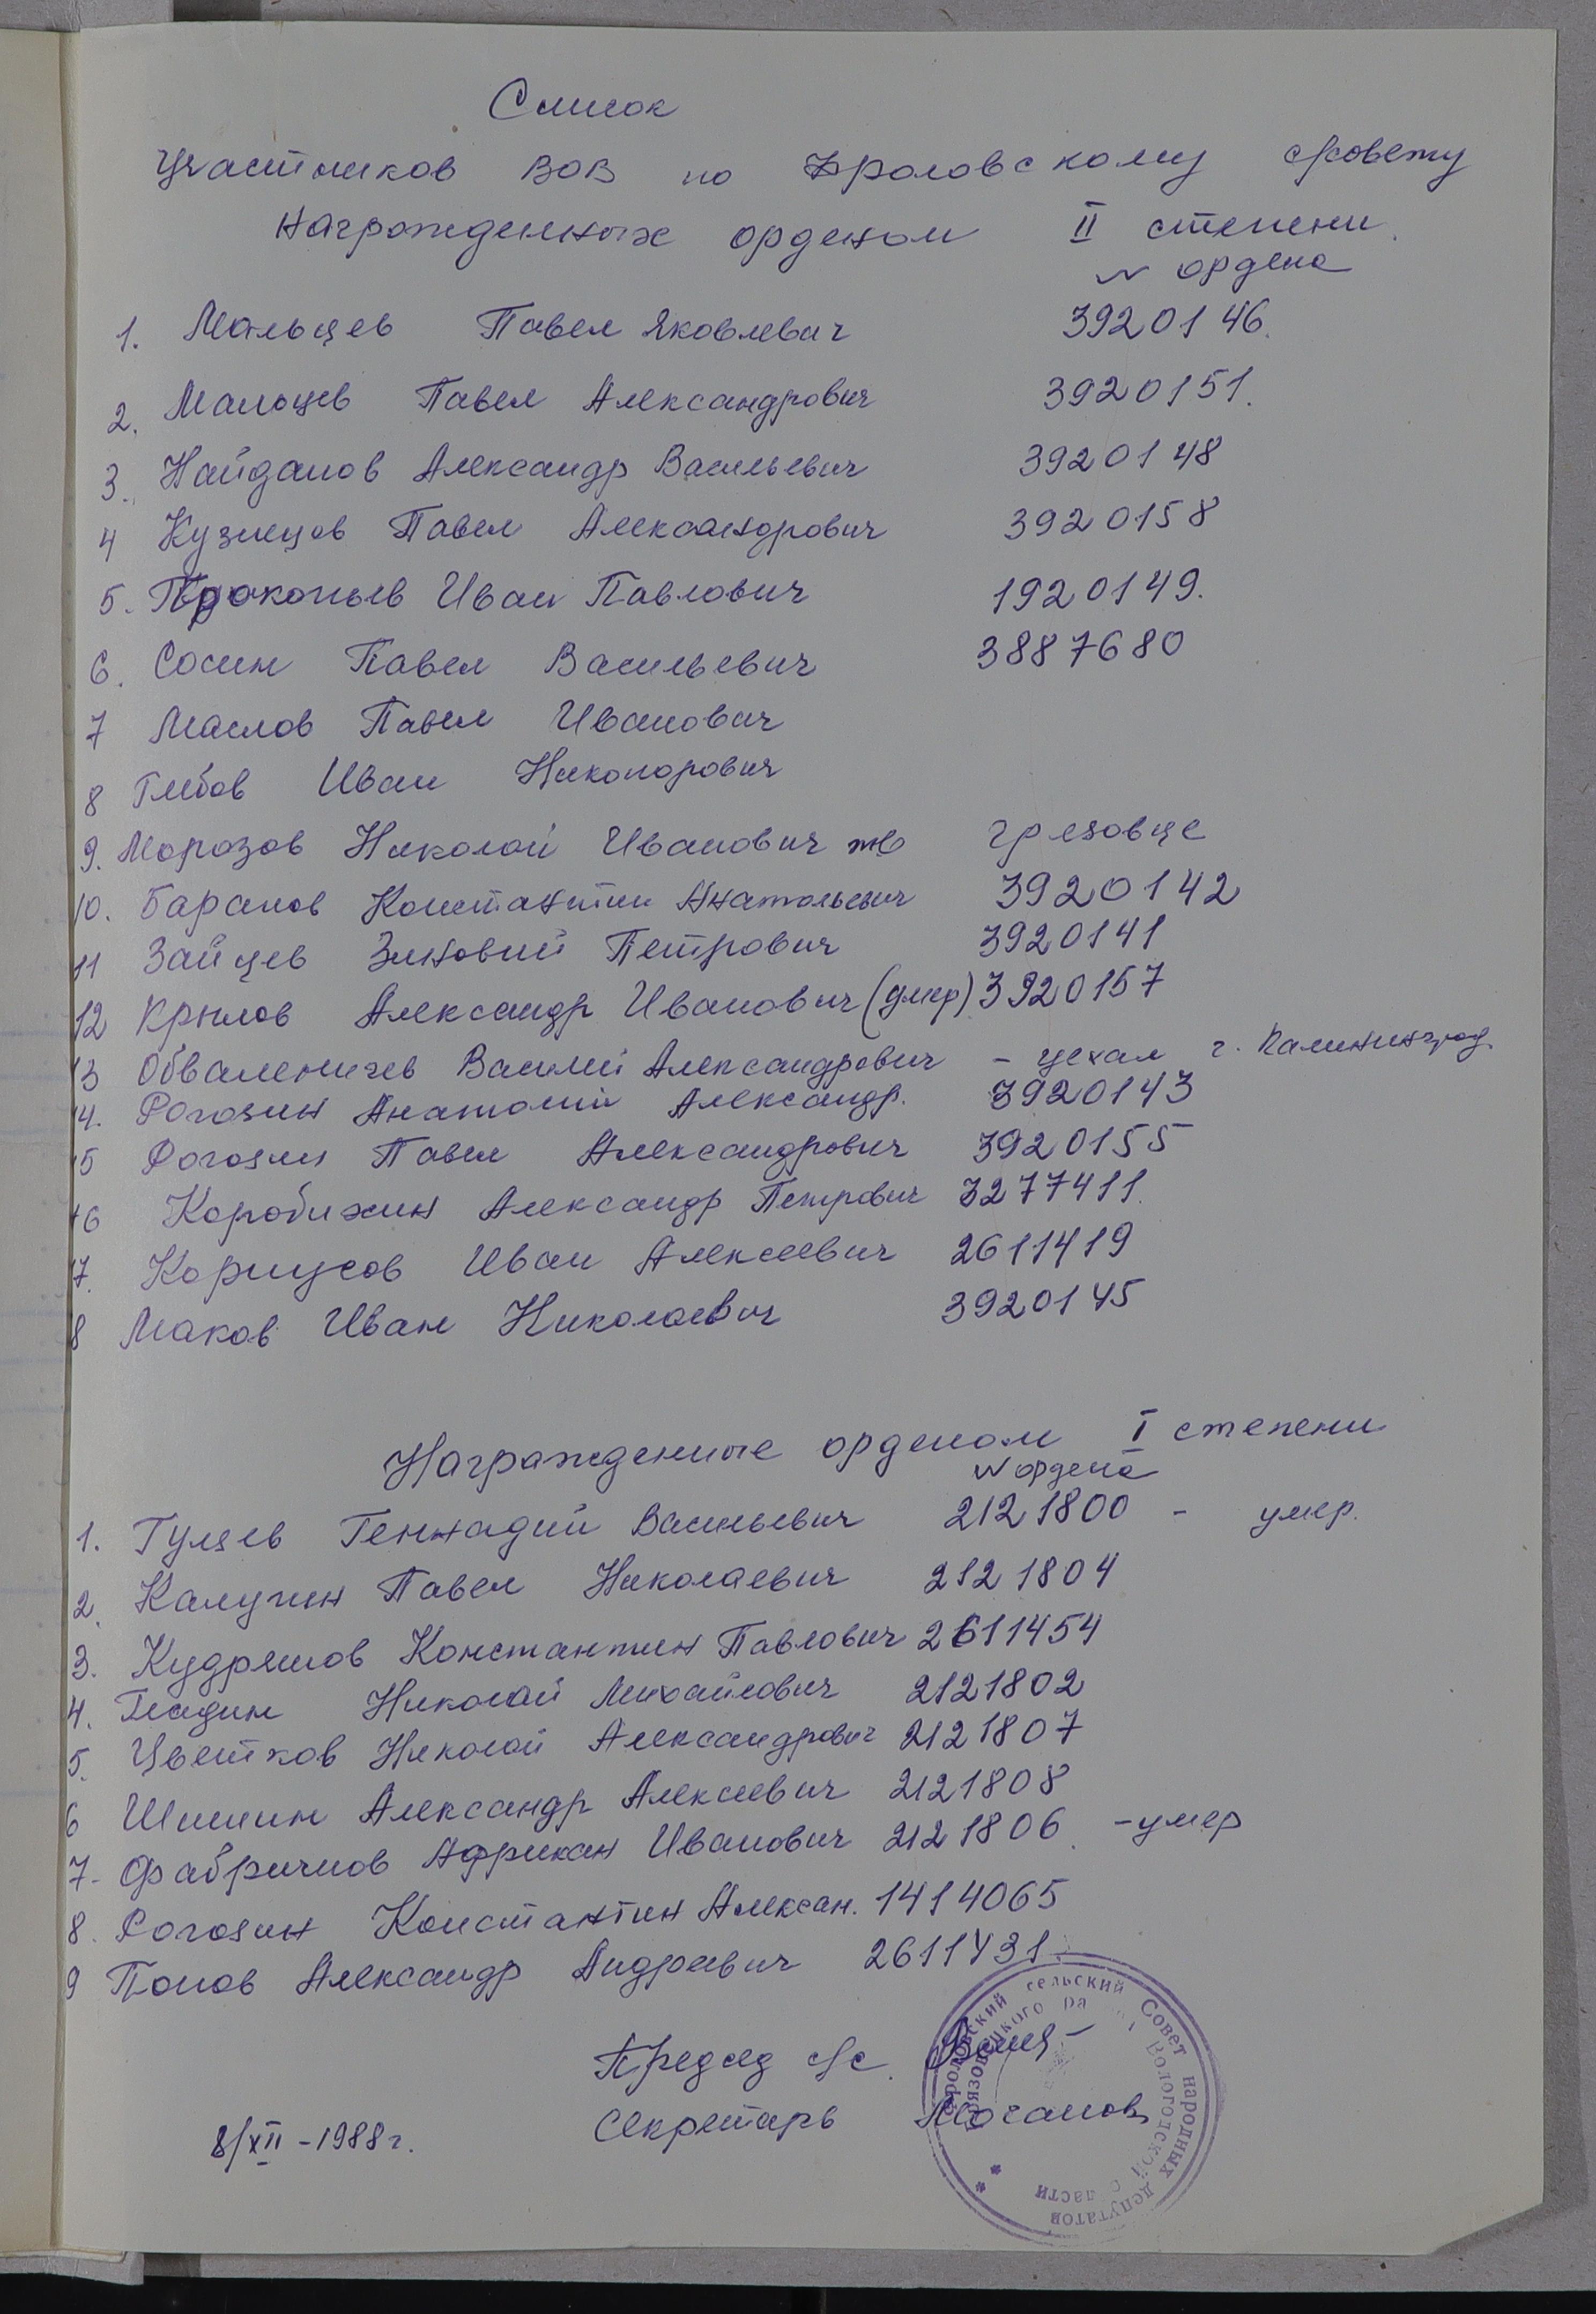 Список
участников ВОВ по Фроловскому с/совету
награжденных орденом II степени
N ордена
1. Мальцев Павел Яковлевич 3920146.
2. Мальцев Павел Александрович 3920151.
3. Найданов Александр Васильевич 3920148
4 Кузнецов Павел Александрович 3920158
5. Прокопьев Иван Павлович 1920149.
6. Сосин Павел Васильевич 3887680
7 Маслов Павел Иванович
8 Глебов Иван Никонорович
9. Морозов Николай Иванович грязовце
10. Баранов Константин Анатольевич 3920142
11 Зайцев Зиновий Петрович 3920141
12 Крылов Александр Иванович (умер) 3920157
13 Обваленичев Василий Александрович - уехал г. Калининград
14. Рогозин Анатолий Александр. 3920143
15 Рогозин Павел Александрович 3920155
16 Коробихин Александр Петрович 3277411.
17. Корпусов Иван Алексеевич 2611419
18 Маков Иван Николаевич 3920145
Награжденные орденом I степени
N ордена
1. Гуляев Геннадий Васильевич 2121800 - умер.
2. Калугин Павел Николаевич 2121804
3. Кудряшов Константин Павлович 2611454
4. Гладин Николай Михайлович 2121802
5. Цветков Николай Александрович 2121807
6 Шишин Александр Алексеевич 2121808
7. Фабричнов Африкан Иванович 2121806. - умер
8. Рогозин Константин Алексан. 1414065
9 Попов Александр Андреевич 2611431.
Председ с/с.
Секретарь
8/XII - 1988 г.
Фроловский сельский Совет народных депутатов
Грязовецкого ра Вологодской области